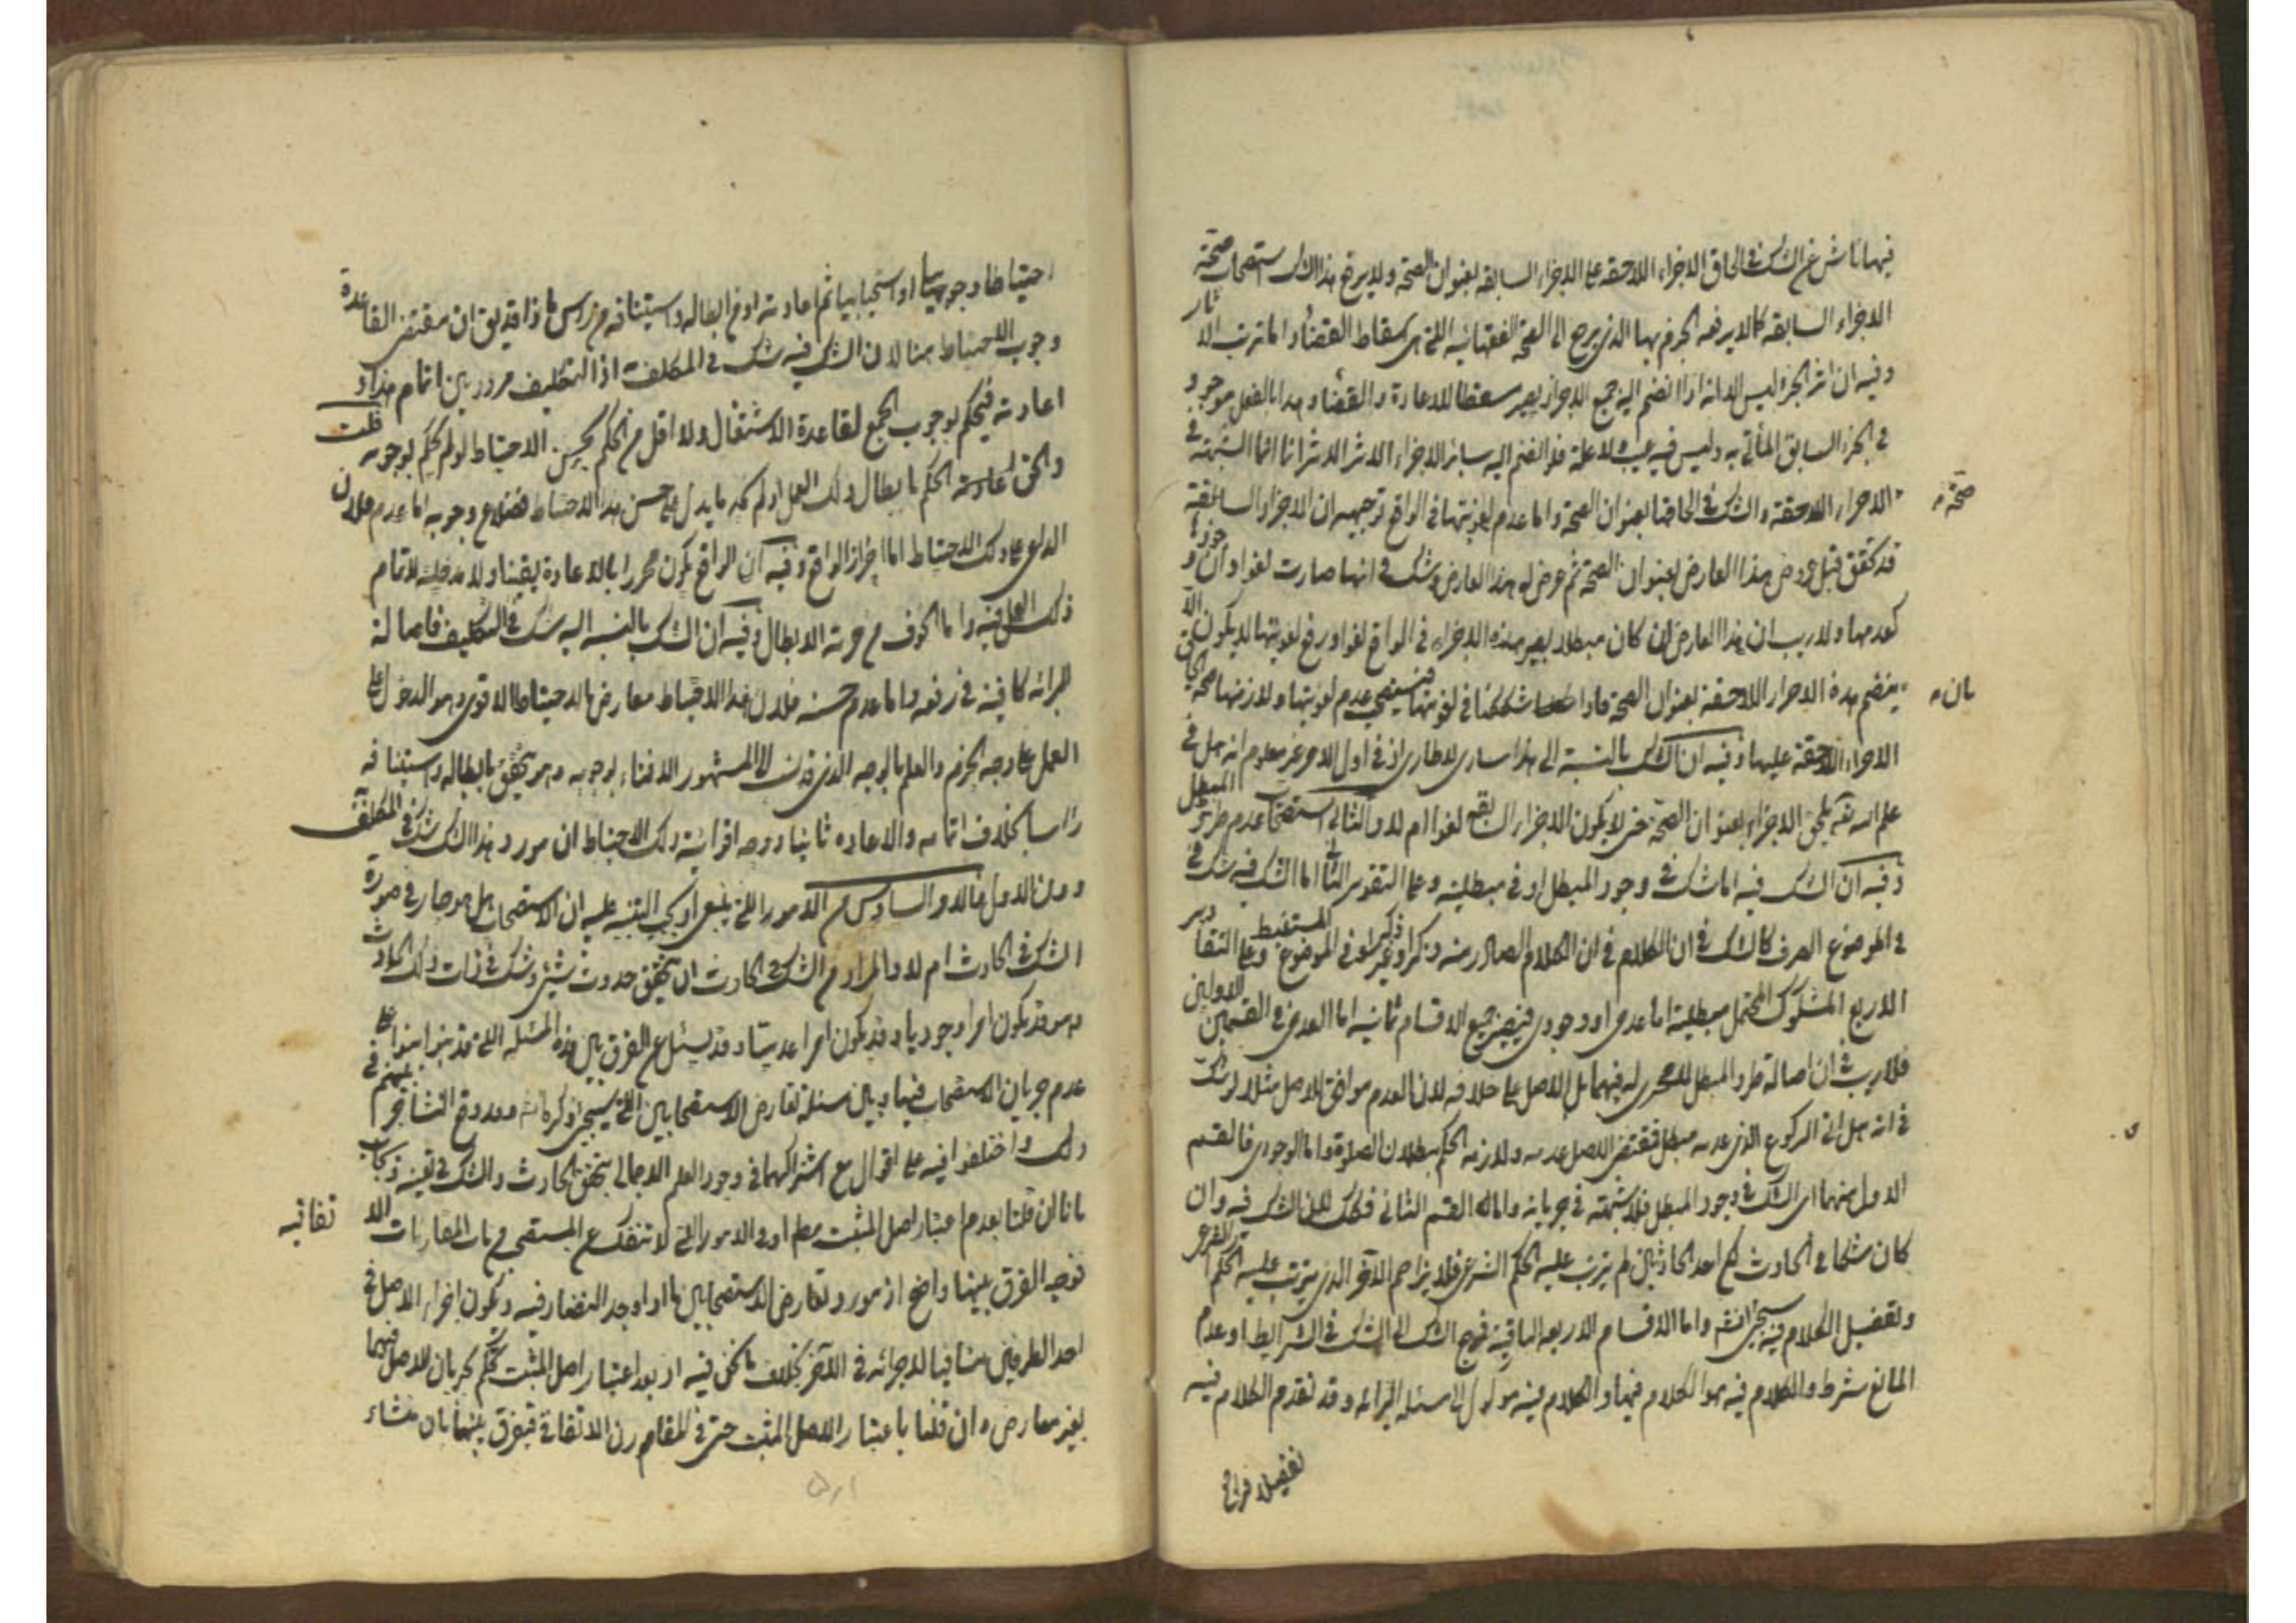 فيها ناش عن الشك في الحاق الاجزاء اللاحقة على الاجزاء السابقة بعنوان الصحة ولا يرفع هذا الشك استصحاب صحة
الاجزاء السابقة كما لا يرفعه الجزم بها الذي يرجع الى الصحة الفقهائية اللتي هي اسقاط القضاء واما ترتب الاثار
وفيه ان اثر الجزء ليس الا انه اذا انضم اليه جميع الاجزاء يصير مسقطا للاعادة والقضاء وهذا بالفعل موجود
في الجزء السابق المأتي به وليس فيه عيب ولا علة فلو انضم اليه سائر الاجزاء لاثر الاثر انما الشبهة في
صحة
الاجزاء اللاحقة والشك في الحاقها بعنوان الصحة واما عدم لغويتها في الواقع توجيهه ان الاجزاء السابقة
قد تحقق قبل عروض هذا العارض بعنوان الصحة ثم عرض له هذا العارض وشك في انها صارت لغوا وان وجودها
كعدمها ولا ريب ان هذا العارض ان كان مبطلا يصير هذه الاجزاء في الواقع لغوا ورفع لغويتها لا يكون الا
بان
ينضم هذه الاجزاء اللاحقة بعنوان الصحة فاذا شككنا في لغويتها فنستصحب عدم لغويتها ولازمها صحة الحاق
الاجزاء اللاحقة عليها وفيه ان الشك بالنسبة الى هذا ساري لا طاري اذ في اول الامر غير معلوم انه هل في
علم الله انه يلحق الاجزاء بعنوان الصحة حتى لا يكون الاجزاء السابقة لغوا ام لا والثالث استصحاب عدم طرو المبطل
وفيه ان الشك فيه اما شك في وجود المبطل او في مبطليته وعلى التقدير الثاني اما الشك فيه شك في
في الموضوع الصرف كالشك في ان الكلام الصادر منه ذكر او غير ذكر او في الموضوع المستنبط وعلى التقادير
الاربع المشكوك المحتمل مبطليته اما عدمي او وجودي فيصير جميع الاقسام ثمانية اما العدمي في القسمين الاولين
فلا ريب في ان اصالة طرو المبطل لا مجرى له فيهما بل الاصل على خلافه لان العدم موافق للاصل مثلا لو شك
في انه هل اتى الركوع الذي عدمه مبطل فمقتضى الاصل عدمه ولازمه الحكم ببطلان الصلوة واما الوجودي فالقسم
الاول منهما اى الشك في وجود المبطل فلا شبهة في جريانه واما القسم الثاني فكك لان الشك فيه وان
كان شكا في الحادث لكن احد الحادثين لم يترتب عليه الحكم الشرعي فلا يزاحم الآخر الذي يترتب عليه الحكم الشرعي
وتفصيل الكلام فيه سيجئ انشاء واما الاقسام الاربعة الباقية فمرجع الشك الى الشك في الشرايط او عدم
المانع شرط والكلام فيه هو الكلام فيها والكلام فيه موكول الى مسئلة البرائة وقد تقدم الكلام فيه
تفصيلا فراجع
احتياطا وجوبيا او استحبابيا ثم اعادته او في ابطاله واستينافه من راس فاذا قد يق ان مقتضى القاعدة
وجوب الاحتياط هنا لان الشك فيه شك في المكلف به اذ التكليف مردد بين اتمام هذا او
اعادته فيحكم بوجوب الجمع لقاعدة الاشتغال ولا اقل من الحكم بحسن الاحتياط لو لم يحكم بوجوبه قلت
والحق اعادة الحكم بابطال ذلك العمل ولم يكن ما يدل على حسن هذا الاحتياط فضلا عن وجوبه اما عدم فلان
الداعي على ذلك الاحتياط اما احراز الواقع وفيه ان الواقع يكون محرزا بالاعادة يقينا ولا مدخلية لاتمام
ذلك العمل فيه واما الخوف من حرمة الابطال وفيه ان الشك بالنسبة اليه شك في التكليف فاصالة
البرائة كافية في رفعه واما عدم حسنه فلان هذا الاحتياط معارض بالاحتياط الاقوى وهو الدخول على
العمل على وجه الجزم والعلم بالوجه الذي قد نسب الى المشهور الافتاء بوجوبه وهو يتحقق بابطاله واستينافه
راسا بخلاف اتمامه والاعادة ثانيا ووجه اقوائية ذلك الاحتياط ان مورد هذا الشك شك في المكلف به
دون الاول فالاول والسادس من الامور اللتي ينبغي او يجب التنبيه عليه ان الاستصحاب هل هو جار في صورة
الشك في الحادث ام لا والمراد من الشك في الحادث ان يتحقق حدوث شيئ وشك في ذات ذلك الحادث
وهو قد يكون امرا وجوديا وقد يكون امرا عدميا وقد يسئل عن الفرق بين هذه المسئلة اللتي قد بنوا على
عدم جريان الاستصحاب فيها وبين مسئلة تعارض الاستصحابين اللتي سيجئ ذكرها وقد وقع التشاجر بينهم في
ذلك واختلفوا فيه على اقوال مع اشتراكهما في وجود العلم الاجمالي بتحقق الحادث والشك في تعيينه فيجاب
بانا ان قلنا بعدم اعتبار اصل المثبت مطلقا او في الامور اللتي لا تنفك عن المستصحب من باب المقارنات الاتفاقية
فوجه الفرق بينهما واضح اذ مورد تعارض الاستصحابين ما اذا وجد التضاد فيه ويكون اجراء الاصل في
احد الطرفين منافيا لاجرائه في الآخر بخلاف ما نحن فيه اذ بعد اعتبار اصل المثبت يحكم بجريان الاصل فيهما
بغير معارض وان قلنا باعتبار الاصل المثبت حتى في المقام رن الاتفاقي فيفرق بينهما بان منشاء